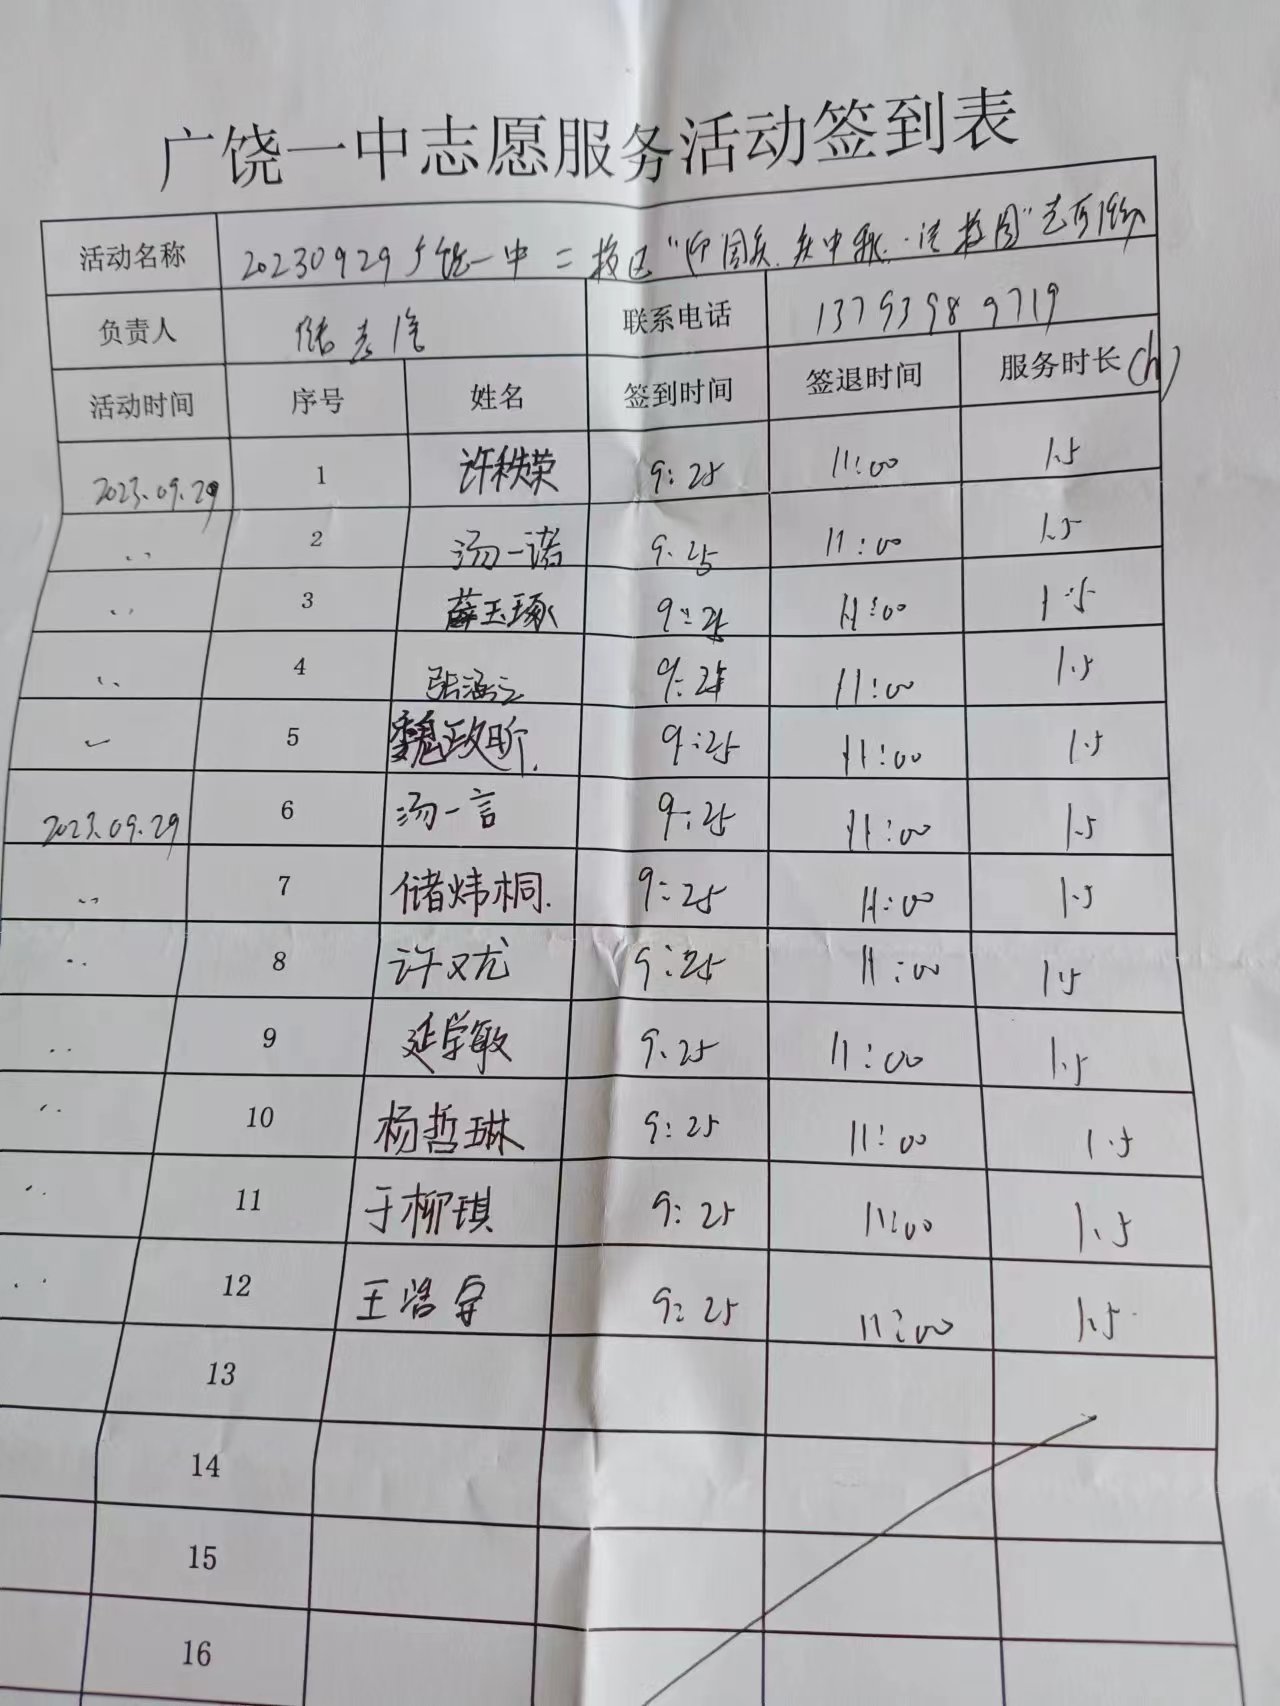 广饶一中志愿服务活动签到表
活动名称 20230929广饶一中二校区“迎国庆.庆中秋.清校园”志愿活动
负责人 志 联系电话 13793989719
活动时间 序号 姓名 签到时间 签退时间 服务时长(h)
2023.09.29 1 许秩荣 9:25 11:00 1.5
〃 2 汤一诺 9.25 11:00 1.5
〃 3 薛玉琢 9:25 11:00 1.5
〃 4 张涵之 9:25 11:00 1.5
〃 5 魏政昕. 9:25 11:00 1.5
2023.09.29 6 汤一言 9:25 11:00 1.5
〃 7 储炜桐. 9:25 11:00 1.5
〃 8 许又尤 9:25 11:00 1.5
〃 9 延学敏 9.25 11:00 1.5
〃 10 杨哲琳 9:25 11:00 1.5
〃 11 于柳琪 9:25 11:00 1.5
〃 12 王浩宇 9:25 11:00 1.5
13
14
15
16